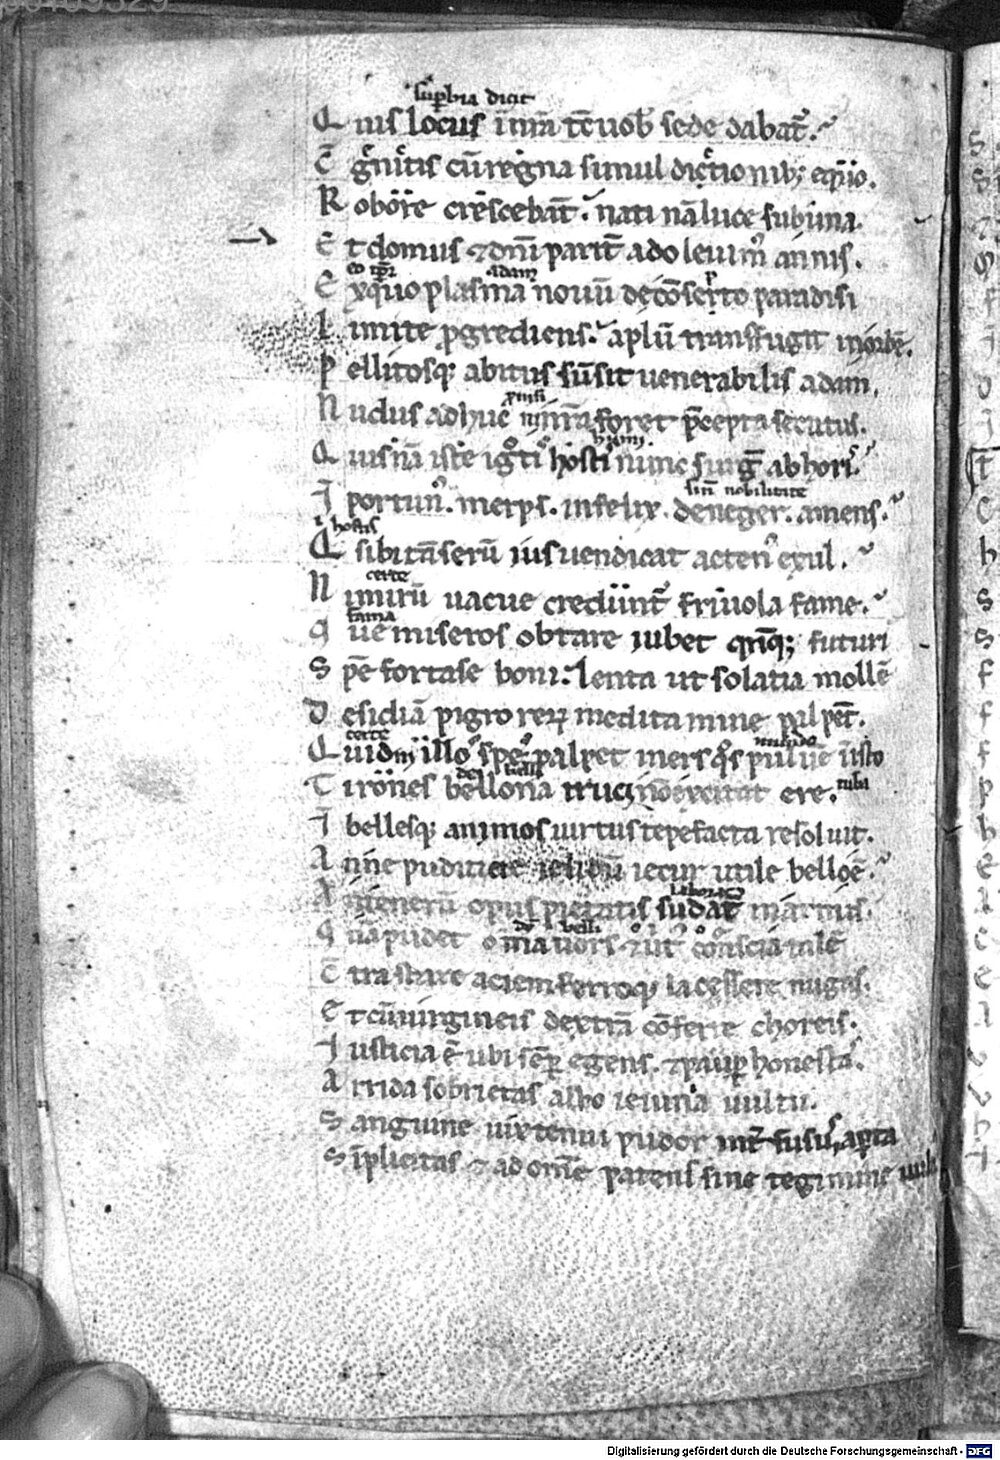 sup̄bia dicit
Q uis locus īm̄a tē uob̄ sede dabat̄.
E cū regna simul
R oborē crescebat̄. nati nā luce sub ima
E t domus ⁊ om̄i parit̄ adoleuim᷒ annis.
adam
E xquo plasma nouū de cōserto paradisi
L imite ꝓgrediens. aplū transfugit inorbē.
P ellitosq; abitus sūsit uenerabilis adam,
N udus adhuc ni nr̄a foret p̄cepta secutus.
Q uisnā iste igͦtiͦ hostiͦ nunc surḡ ab horiͦ
nobilitate
I portun᷒. iners. infelix. degener. amens.
hostis
Q sibi tā serū ius uendicat acten᷒ exul.
certe
N imirū uacue creduūnt᷑ friuola fame.
fama
q ue miseros obtare iubet qn̄q; futuri
S pē fortase boni. lenta ut solatia mollē
D esidiā pigro reꝝ meditamine palpēt.
certe
Q uidni illoͦˢ speˢ palpet iners qͦs puluē īisto
tuba
T irones bellona truci nō excitat ere.
I bellesq; animos uirtus tepefacta resoluit.
A nne pudicicie gelidū iecur utile belloē
A n tenerū opus pietatis sudat̄ inarmis.
q nā pudet
C trastare aciem ferroq; lacessere nugas.
E t cū uirgineis dextrā cōferre choreis.
I usticia ē ubi sēp̄ egens. ⁊ paup̄ honesta.
A rrida sobrietas albo ieiunia uultu.
S anguine uix tenui pudor int̄fusus, apta
S īplicitas ⁊ ad om̄e patens sine tegimine
Digitalisierung gefördert durch die Deutsche Forschungsgemeinschaft - DFG